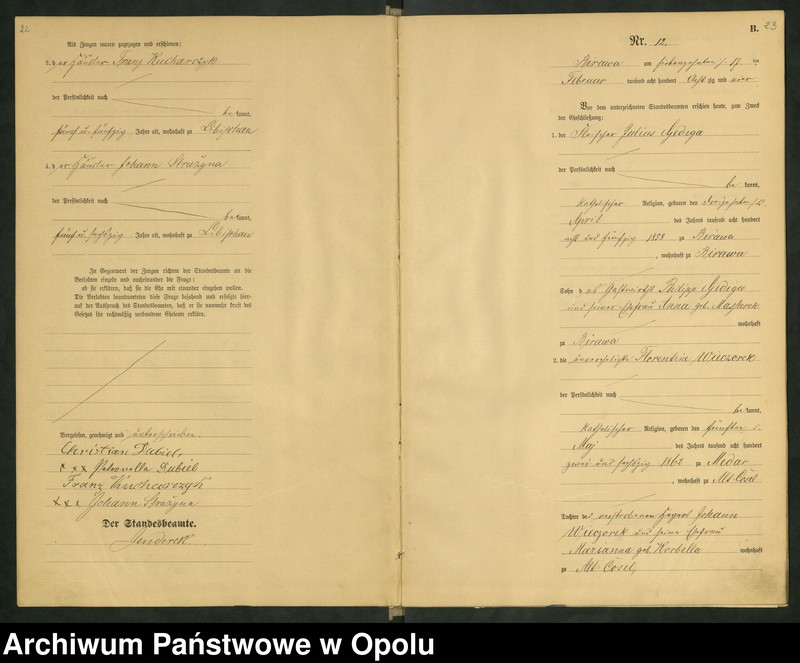 22.
Als Zeugen waren zugezogen und erschienen:
3. der Häusler Franz Kucharczyk
der Persönlichkeit nach
be kannt,
fünf u. fünfzig Jahre alt, wohnhaft zu Libischau
4. der Häusler Johann Stražyna
der Persönlichkeit nach
be kannt,
fünf u. sechszig Jahre alt, wohnhaft zu Libischau
In Gegenwart der Zeugen richtete der Standesbeamte an die
Verlobten einzeln und nacheinander die Frage:
ob sie erklären, daß sie die Ehe mit einander eingehen wollen.
Die Verlobten beantworteten diese Frage bejahend und erfolgte hier-
auf der Ausspruch des Standesbeamten, daß er sie nunmehr kraft des
Gesetzes für rechtmäßig verbundene Eheleute erkläre.
Vorgelesen, genehmigt und unterschrieben.
Christian Dubiel,
x x x Petronella Dubiel
Franz Kucharczyk
x x x Johann Stražyna
Der Standesbeamte.
Jenderek.
B.
23
Nr. 12.
Birawa am siebenzehnten /. 17. ten
Februar tausend acht hundert acht zig und vier
Vor dem unterzeichneten Standesbeamten erschien heute, zum Zweck
der Eheschließung:
1. der Fleischer Julius Gediga
der Persönlichkeit nach
be kannt,
katholischer Religion, geboren den dreizehnten
April des Jahres tausend acht hundert
acht und fünfzig 1858 zu Birawa
, wohnhaft zu Birawa
Sohn des Gastwirths Philipp Gediga
und seiner Ehefrau Anna geb.
wohnhaft
zu Birawa
2. die unverehelichte Florentine Wieczorek
der Persönlichkeit nach
be kannt,
katholischer Religion, geboren den fünften
Maj des Jahres tausend acht hundert
zwei und sechszig 1862 zu Medar
, wohnhaft zu Alt Cosel
Tochter des verstorbenen Johann
Wieczorek und seine Ehefrau
Marianna geb. Korbella wohnhaft
zu Alt Cosel,
Archiwum Państwowe w Opolu